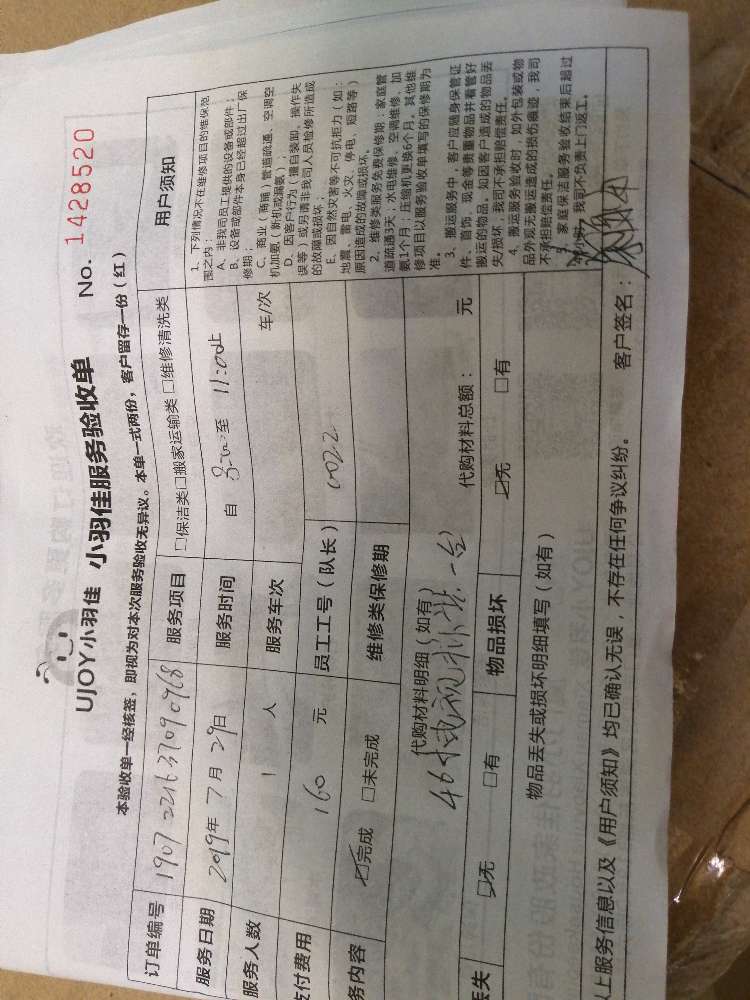 UJOY小羽佳 小羽佳服务验收单 No. 1428520
本验收单一经核签，即视为对本次服务验收无异议。本单一式两份，客户留存一份（红）
订单编号 1907221637090968 服务项目 □保洁类□搬家运输类 □维修清洗类
服务日期 2019年 7 月 29 日 服务时间 自 8:00 至 11:00止
服务人数 1 人 服务车次 车/次
支付费用 160 元 员工工号（队长） 0022
务内容 ☑完成 □未完成 维修类保修期
代购材料明细（如有）
代购材料总额： 元
丢失 ☑无 □有 物品损坏 ☑无 □有
物品丢失或损坏明细填写（如有）
以上服务信息以及《用户须知》均已确认无误，不存在任何争议纠纷。 客户签名：
用户须知
1、下列情况不在维修项目的维保范
围之内：
A、非我司员工提供的设备或部件；
B、设备或部件本身已经超过出厂保
修期；
C、商业（商铺）管道疏通、空调空
机加氨（新机或漏氨）；
D、因客户行为（擅自装卸、操作失
误等）或另请非我司人员检修所造成
的故障或损坏；
E、因自然灾害等不可抗拒力（如：
地震、雷电、火灾、停电、短路等）
原因造成的故障或损坏。
2、维修类服务免费保修期：家庭管
道疏通3天；水电维修、空调维修、加
氨1个月；压缩机更换6个月。其他维
修项目以服务验收单填写的保修期为
准。
3、搬运服务中，客户应随身保管证
件、首饰、现金等贵重物品并看管好
搬运的物品。如因客户造成的物品丢
失/损坏，我司不承担赔偿责任。
4、搬运服务验收时，如外包装或物
品外观无搬运造成的损伤痕迹，我司
不承担赔偿责任。
5、家庭保洁服务验收结束后超过
小时，我司不负责上门返工。